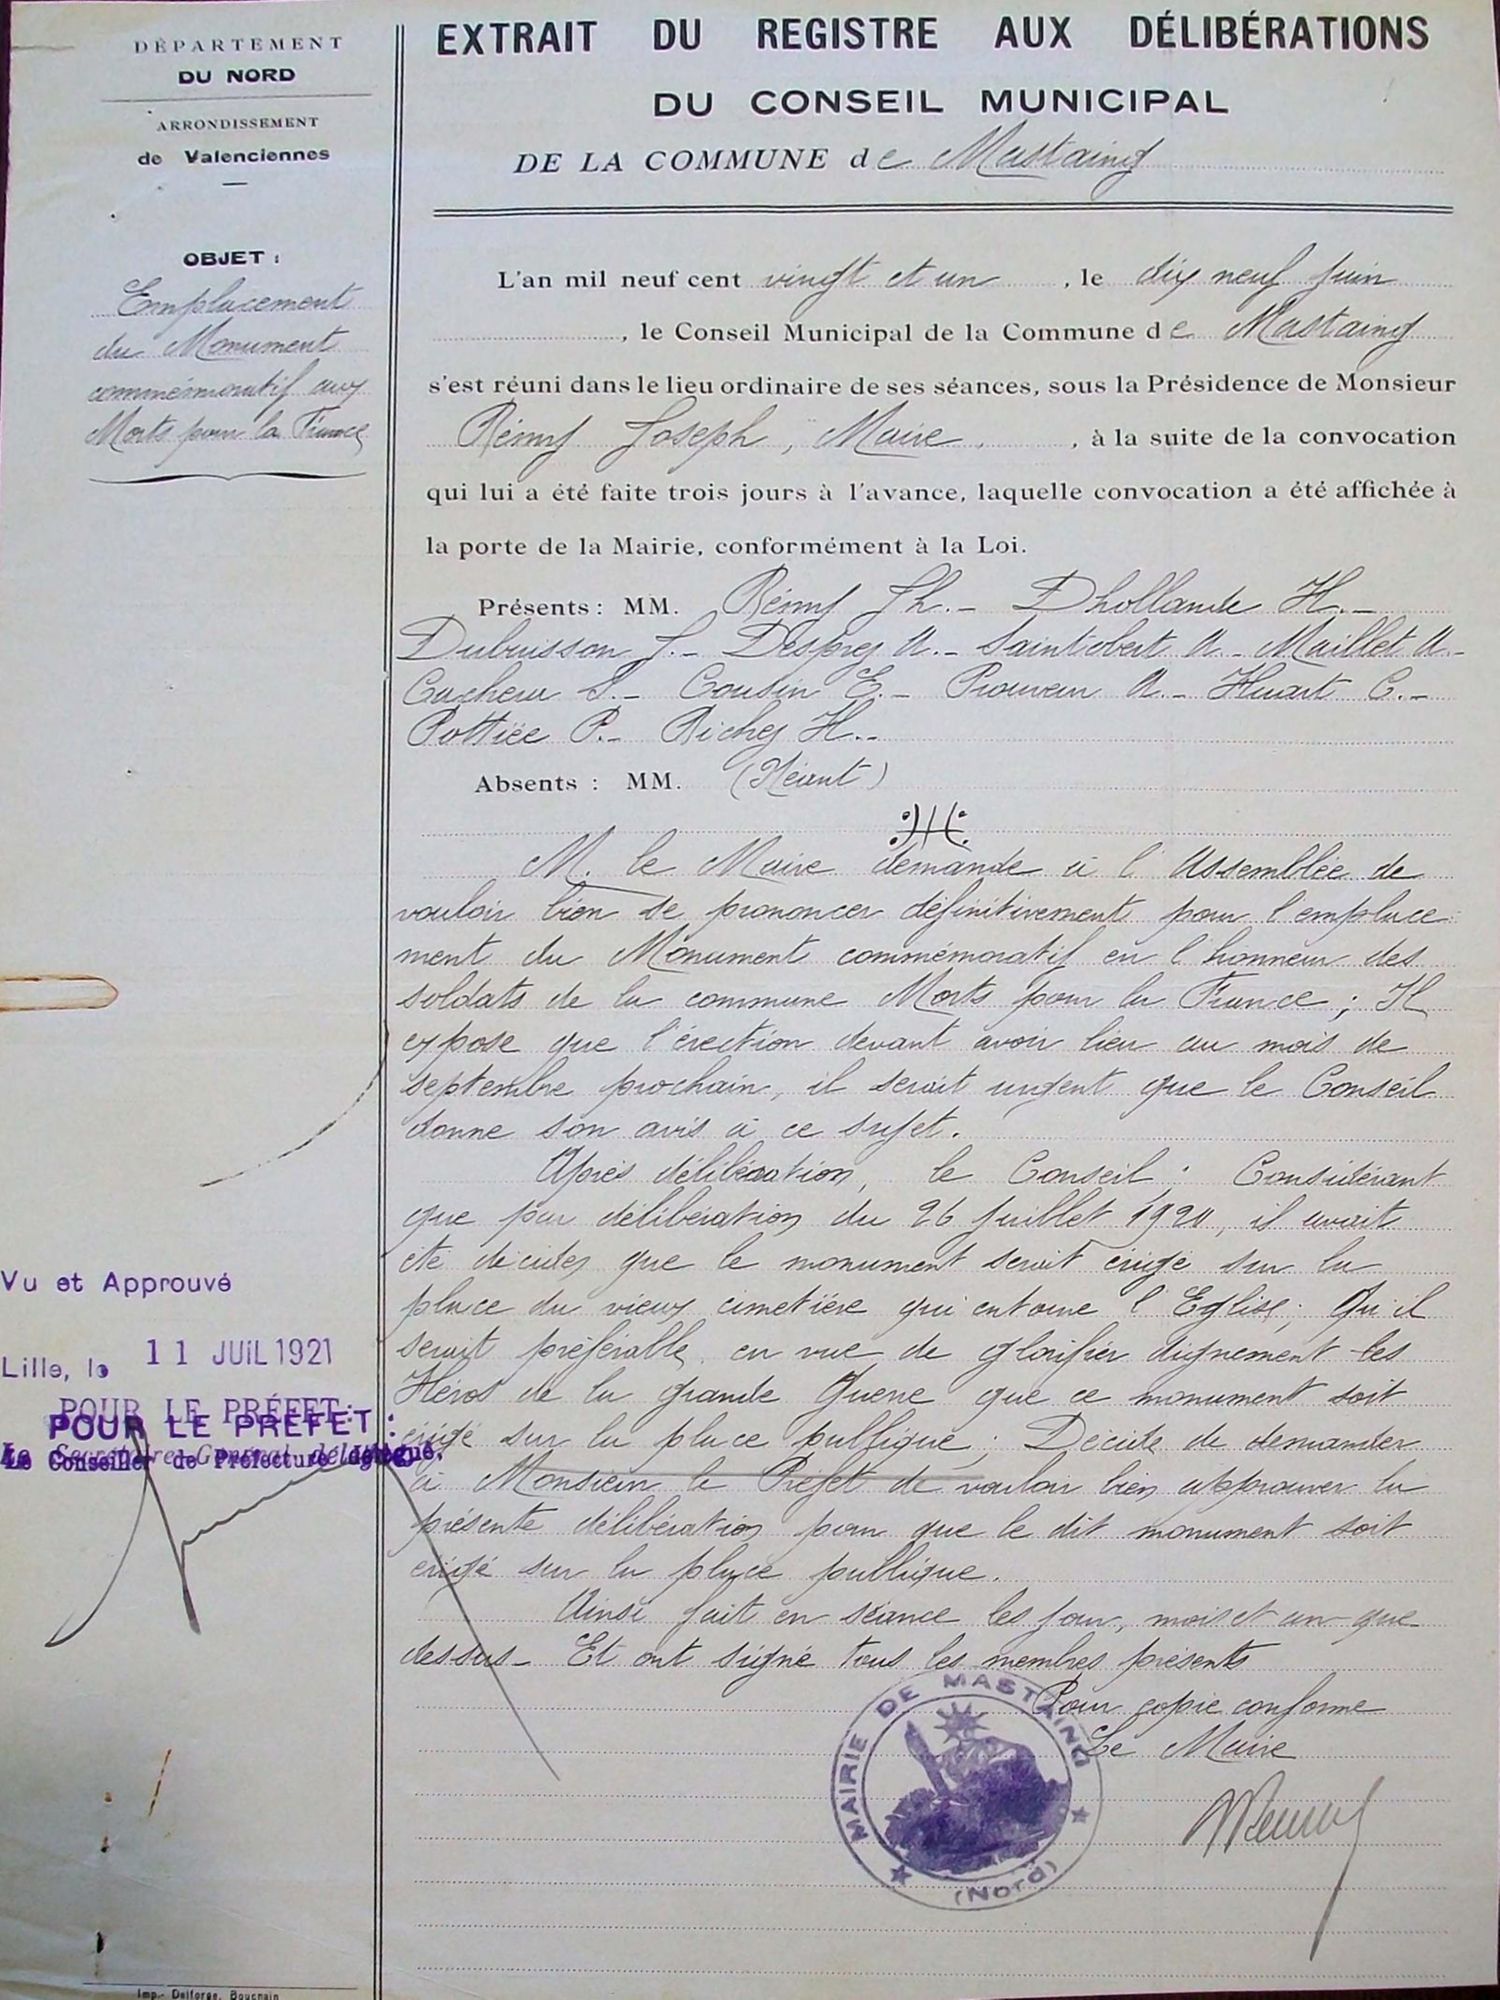 DÉPARTEMENT
DU NORD
ARRONDISSEMENT
de Valenciennes
OBJET :
Emplacement
du Monument
commémoratif aux
Morts pour la France
EXTRAIT DU REGISTRE AUX DÉLIBÉRATIONS
DU CONSEIL MUNICIPAL
DE LA COMMUNE de Mastaing
L'an mil neuf cent vingt et un , le dix neuf juin
, le Conseil Municipal de la Commune de Mastaing
s'est réuni dans le lieu ordinaire de ses séances, sous la Présidence de Monsieur
Rémy Joseph, Maire. , à la suite de la convocation
qui lui a été faite trois jours à l'avance, laquelle convocation a été affichée à
la porte de la Mairie, conformément à la Loi.
Présents : MM. Rémy Jh. - Dhollande H. -
Dubuisson J. - Desprez A. - Saintobert A - Maillet A -
Cacheux S. - Cousin E. - Prouveur A - Huart C. -
Pottiée P. - Richez H. -
Absents : MM. (Néant)
M. le Maire demande à l'Assemblée de
vouloir bien se prononcer définitivement pour l'emplace
ment du Monument commémoratif en l'honneur des
soldats de la commune Morts pour la France ; Il
expose que l'érection devant avoir lieu au mois de
septembre prochain, il serait urgent que le Conseil
donne son avis à ce sujet.
Après délibération, le Conseil ; Considérant
que par délibération du 26 juillet 1920, il avait
été décidez que le monument serait érigé sur la
place du vieux cimetière qui entoure l'Eglise ; Qu'il
serait préférable, en vue de glorifier dignement les
Héros de la grande Guerre que ce monument soit
érigé sur la place publique ; Décide de demander
à Monsieur le Préfet de vouloir bien approuver la
présente délibération pour que le dit monument soit
érigé sur la place publique.
Ainsi fait en séance les jour, mois et an que
dessus - Et ont signé tous les membres présents
Pour copie conforme
Le Maire
Rémy
MAIRIE DE MASTAING
(Nord)
Vu et Approuvé
Lille, le 11 JUIL 1921
POUR LE PRÉFET :
POUR LE PREFET :
Le Secrétaire Général délégué
Le Conseiller de Préfecture délégué.
Imp. Delforge, Bouchain